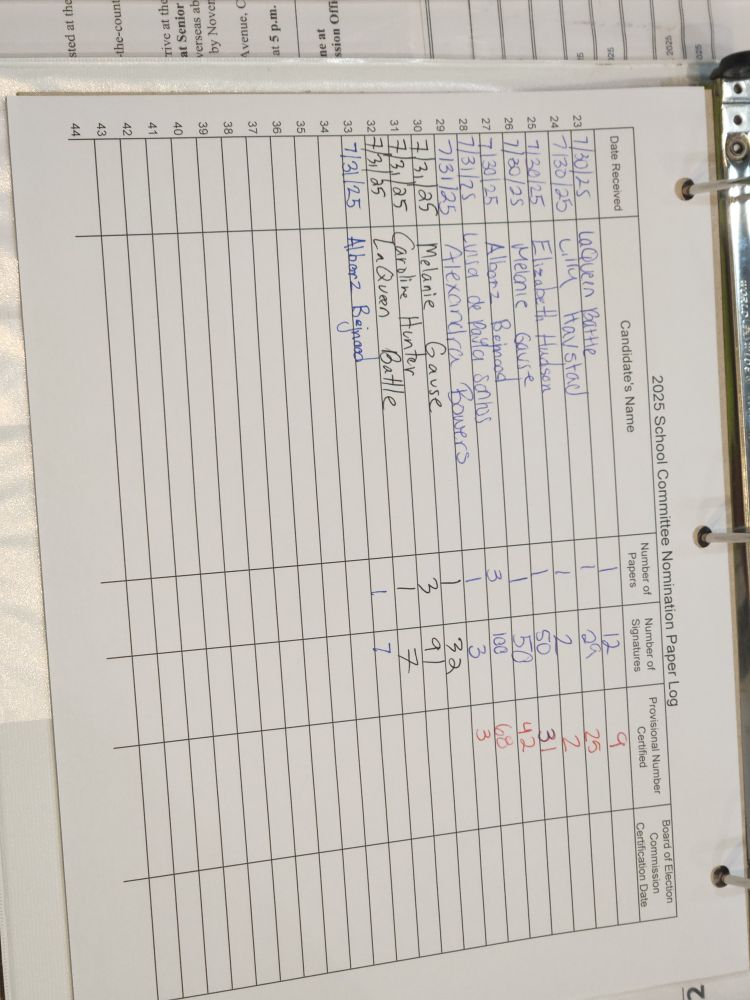 sted at the
-the-count
rive at the
at Senior
verseas ab
by Nover
Avenue, C
at 5 p.m.
ne at
ssion Offi
2025
2025
2025 School Committee Nomination Paper Log
Date Received Candidate's Name Number of Papers Number of Signatures Provisional Number Certified Board of Election Commission Certification Date
23 7/30/25 LaQueen Battle 1 12 9
24 7/30/25 Lilly Havstad 1 29 25
25 7/30/25 Elizabeth Hudson 1 2 2
26 7/30/25 Melanie Gause 1 50 31
27 7/30/25 Albanz Bejnood 1 50 42
28 7/31/25 Luisa de Paula Santos 3 100 68
29 7/31/25 Alexandra Bowers 1 3 3
30 7/31/25 Melanie Gause 1 32
31 7/31/25 Caroline Hunter 3 91
32 7/31/25 LaQueen Battle 1 7
33 7/31/25 Albanz Bejnood 1 7
34
35
36
37
38
39
40
41
42
43
44
2